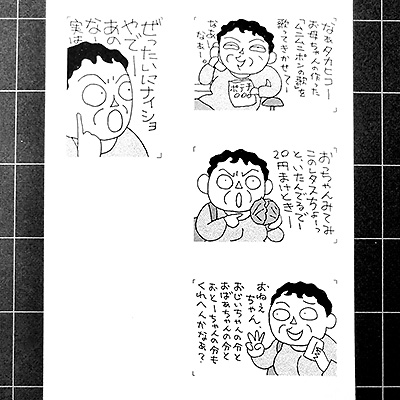 なぁタカヒコー
お母ちゃんの作った
「ムニムニポンの歌」を
歌ってきかせてー
なぁ
なぁー。
ポテチ
おっちゃんみてみ
このレタスちょーっ
と、いたんでるでー
20円まけときー
おねぇ
ちゃん、
おじいちゃんの分と
おばあちゃんの分と
おとーちゃんの分も
くれへんかなぁ?
ぜったいにナイショ
やでー
あの
なー
実は